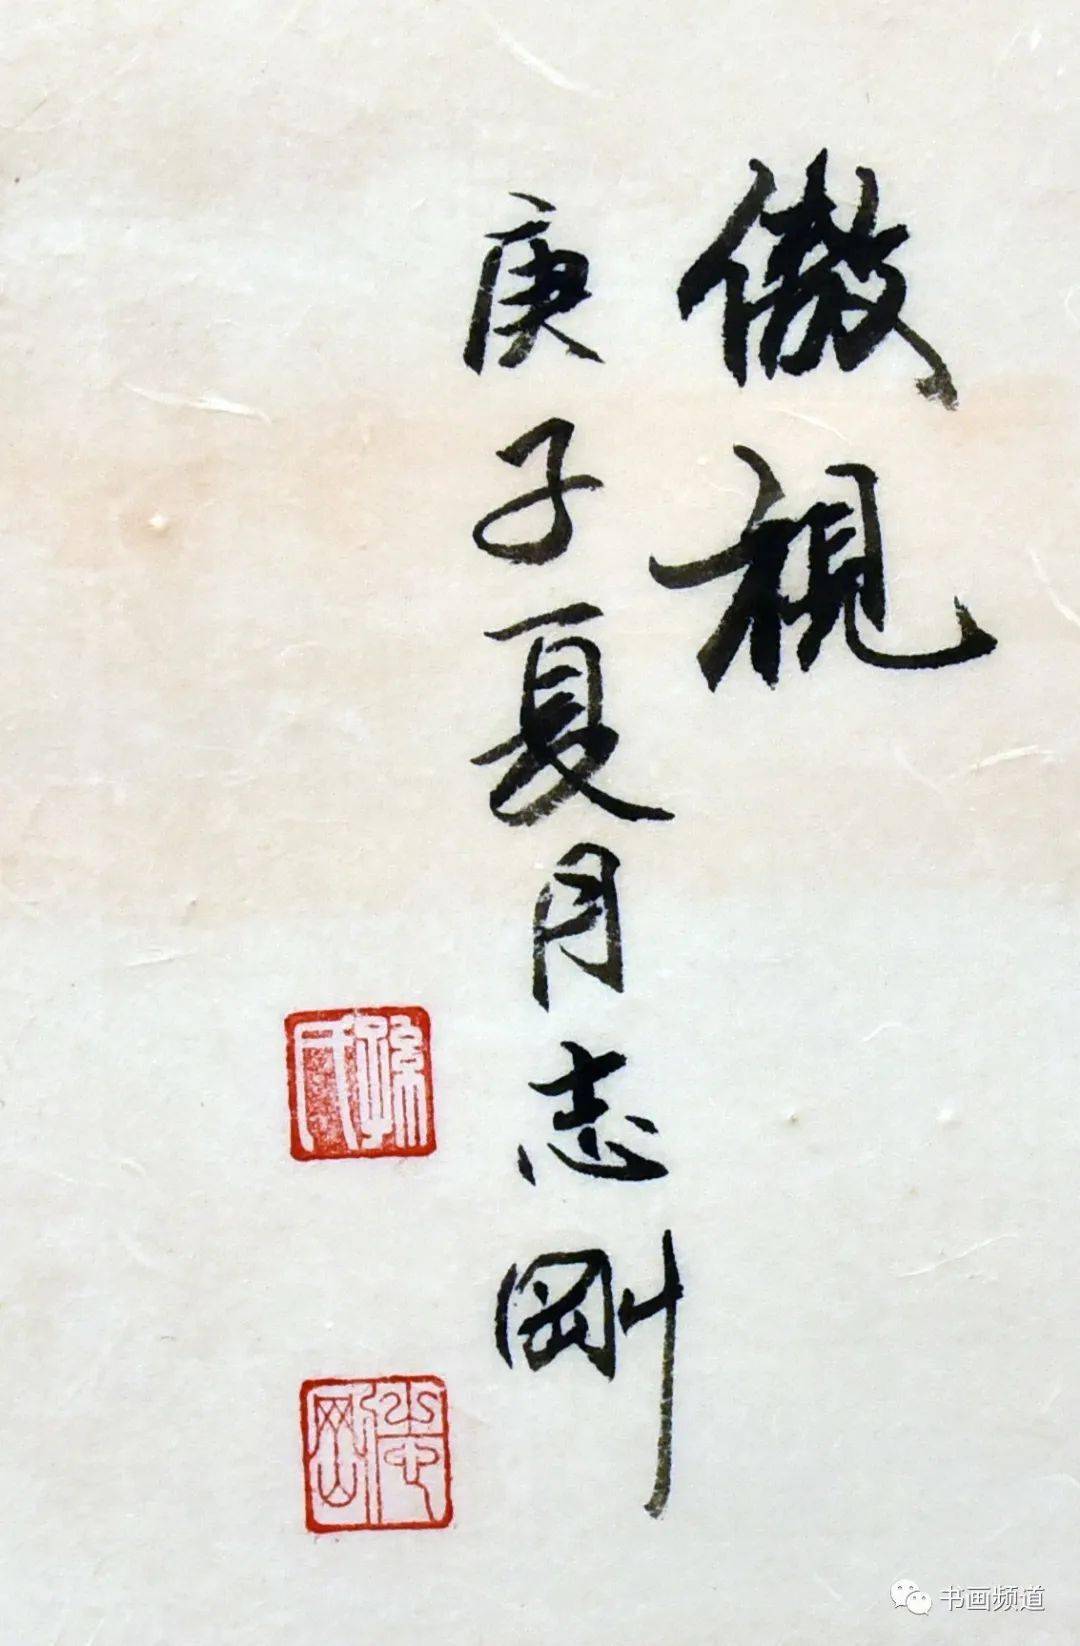 傲視
庚子夏月志剛
孫氏
志剛
书画频道